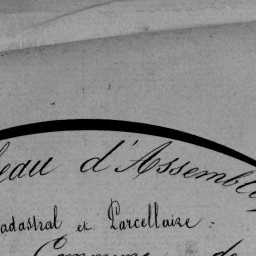 eau d'Assembla
adastral et Parcellaire :
Commune de